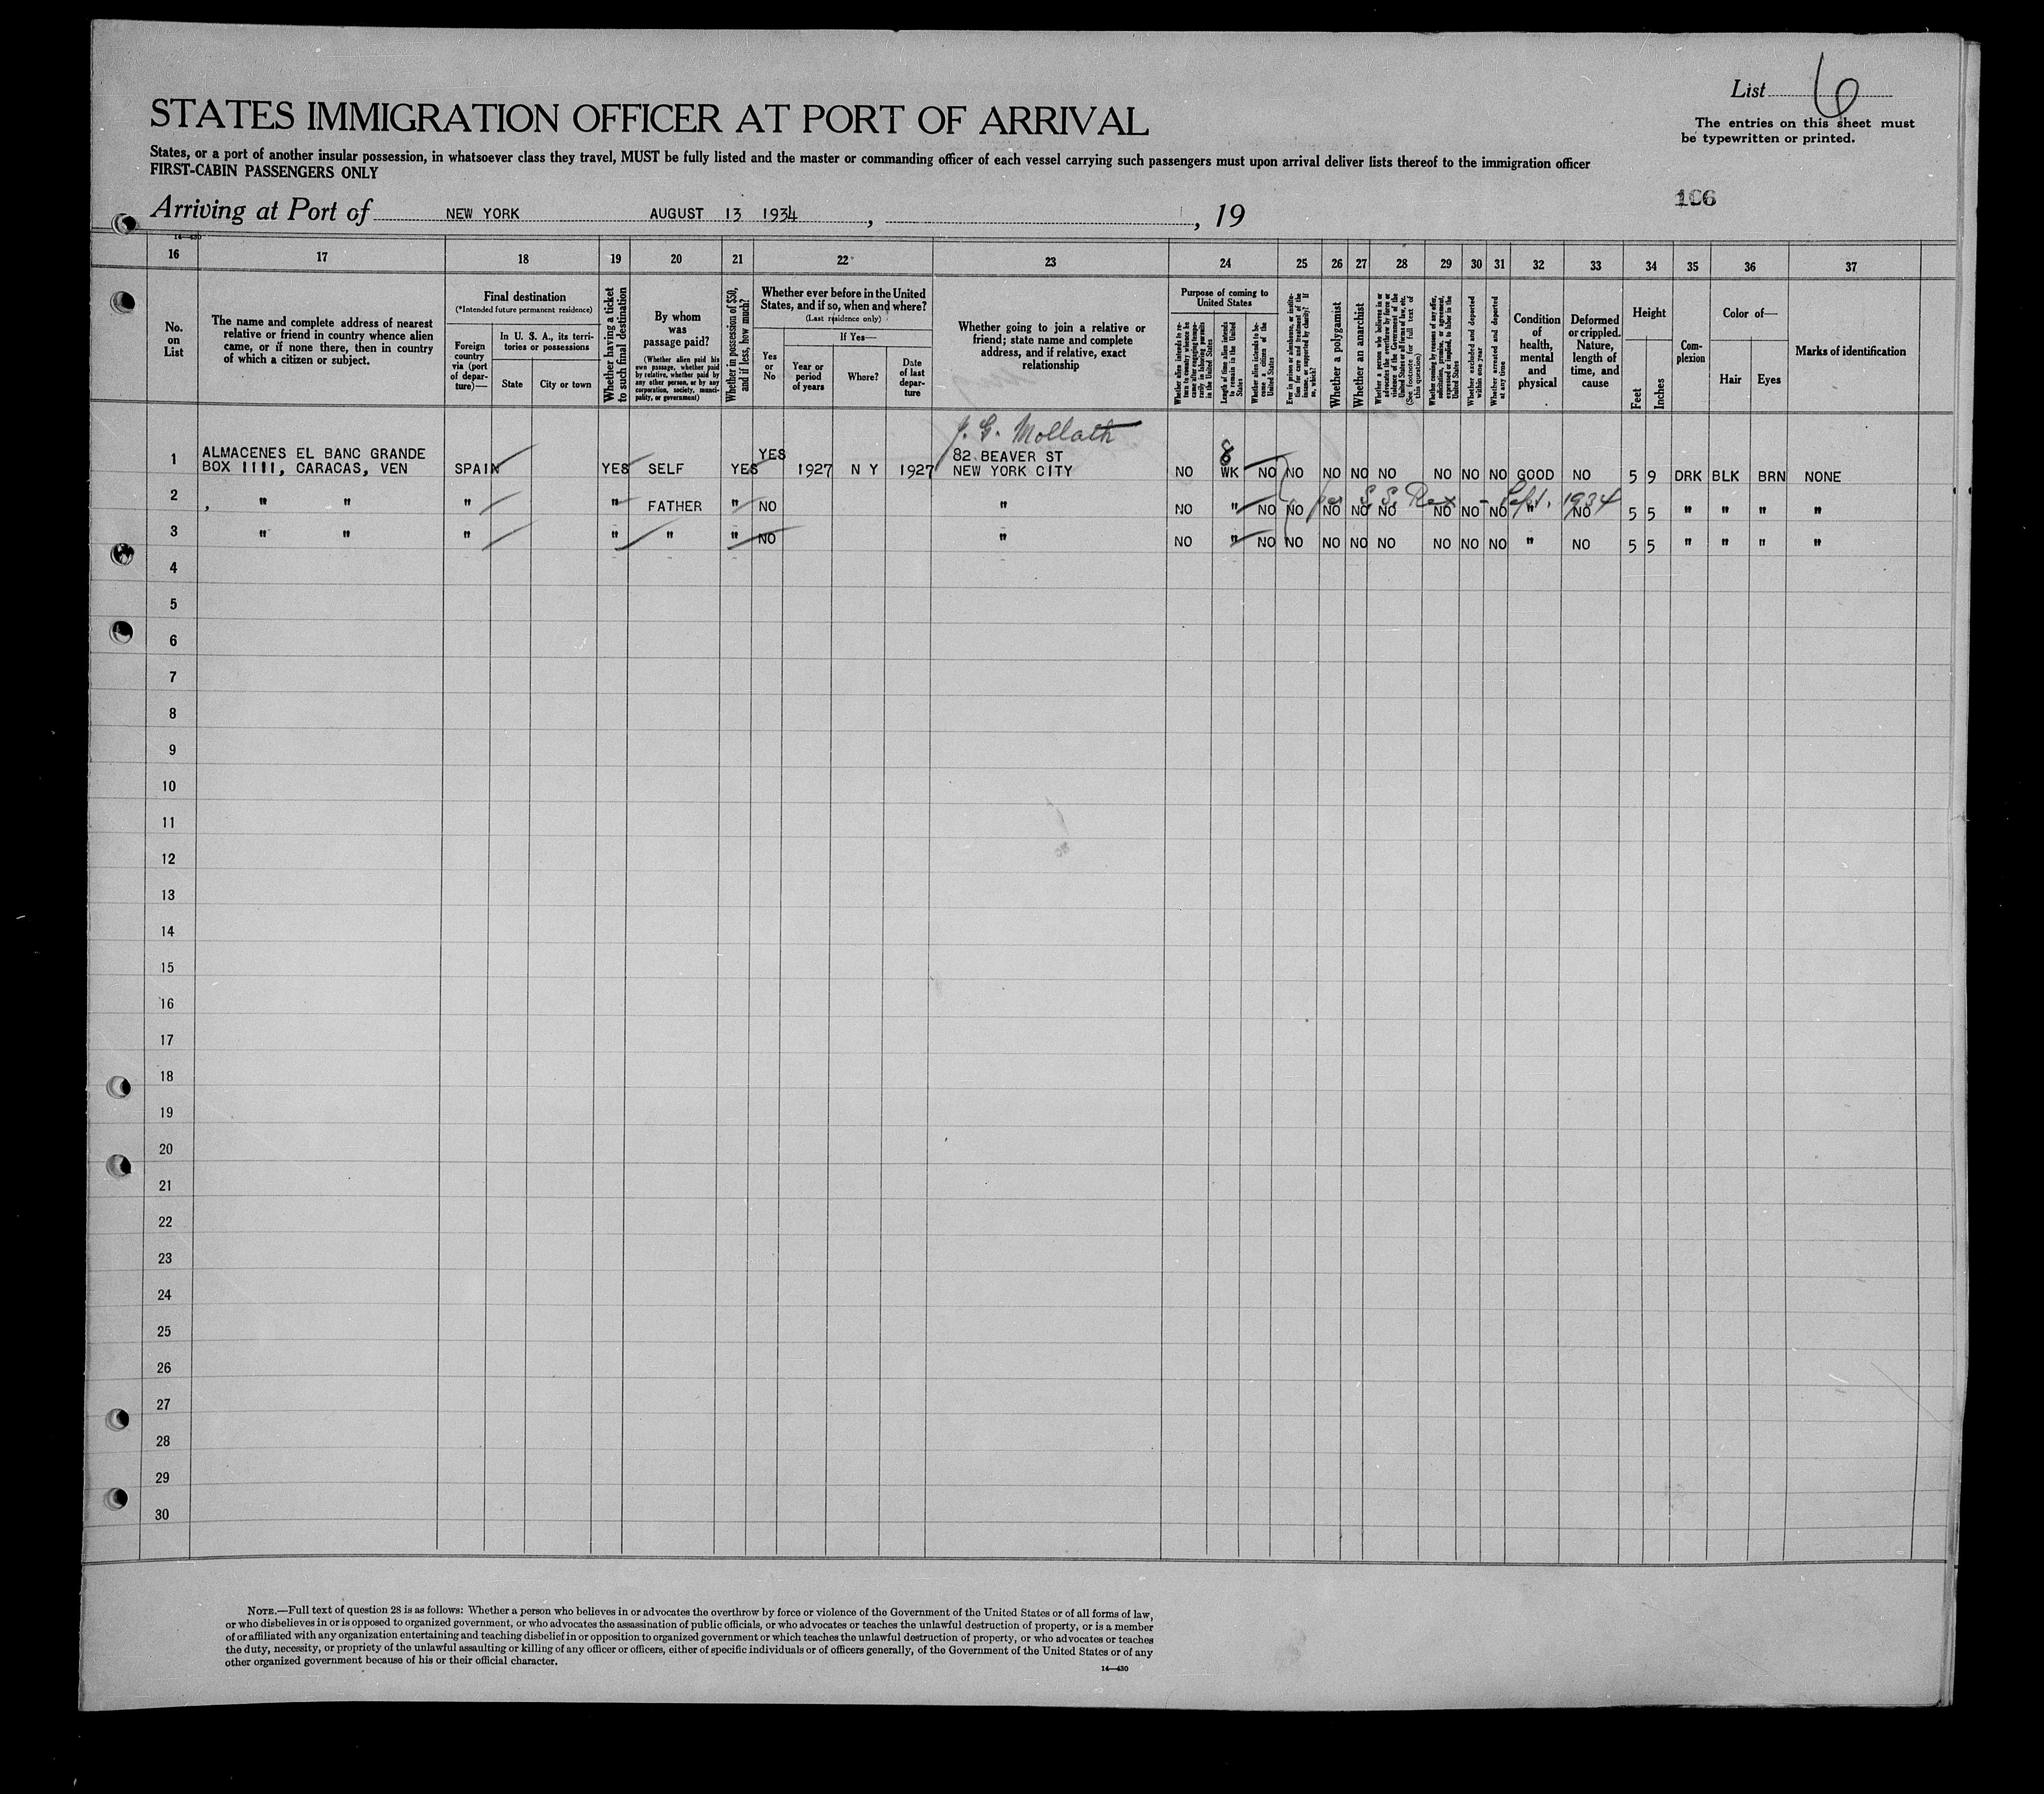 List 6
The entries on this sheet must
be typewritten or printed.
STATES IMMIGRATION OFFICER AT PORT OF ARRIVAL
States, or a port of another insular possession, in whatsoever class they travel, MUST be fully listed and the master or commanding officer of each vessel carrying such passengers must upon arrival deliver lists thereof to the immigration officer
FIRST-CABIN PASSENGERS ONLY
106
Arriving at Port of NEW YORK AUGUST 13 1934, , 19
14—430
16 17 18 19 20 21 22 23 24 25 26 27 28 29 30 31 32 33 34 35 36 37
No.
on
List
The name and complete address of nearest
relative or friend in country whence alien
came, or if none there, then in country
of which a citizen or subject.
Final destination
(*Intended future permanent residence)
Foreign
country
via (port
of depar-
ture)—
In U. S. A., its terri-
tories or possessions
State
City or town
Whether having a ticket
to such final destination
By whom
was
passage paid?
(Whether alien paid his
own passage, whether paid
by relative, whether paid by
any other person, or by any
corporation, society, munici-
pality, or government)
Whether in possession of $50,
and if less, how much?
Whether ever before in the United
States, and if so, when and where?
(Last residence only)
Yes
or
No
If Yes—
Year or
period
of years
Where?
Date
of last
depar-
ture
Whether going to join a relative or
friend; state name and complete
address, and if relative, exact
relationship
Purpose of coming to
United States
Whether alien intends to re-
turn to country whence he
came after engaging tempo-
rarily in laboring pursuits
in the United States
Length of time alien intends
to remain in the United
States
Whether alien intends to be-
come a citizen of the
United States
Ever in prison or almshouse, or institu-
tion for care and treatment of the
insane, or supported by charity? If
so, which?
Whether a polygamist
Whether an anarchist
Whether a person who believes in or
advocates the overthrow by force or
violence of the Government of the
United States or all forms of law, etc.
(See footnote for full text of
this question)
Whether coming by reason of any offer,
solicitation, promise, or agreement,
expressed or implied, to labor in the
United States
Whether excluded and deported
within one year
Whether arrested and deported
at any time
Condition
of
health,
mental
and
physical
Deformed
or crippled.
Nature,
length of
time, and
cause
Height
Feet
Inches
Com-
plexion
Color of—
Hair
Eyes
Marks of identification
J. G. Mollath
1 ALMACENES EL BANC GRANDE YES 82 BEAVER ST 8
BOX 1111, CARACAS, VEN SPAIN YES SELF YES 1927 N Y 1927 NEW YORK CITY NO WK NO NO NO NO NO NO NO NO GOOD NO 5 9 DRK BLK BRN NONE
per S.S. Rex - Sept. 1934
2 , " " " " FATHER " NO " NO " NO NO NO NO NO NO NO NO " NO 5 5 " " " "
3 " " " " " " NO " NO " NO NO NO NO NO NO NO NO " NO 5 5 " " " "
4
5
6
7
8
9
10
11
12
13
14
15
16
17
18
19
20
21
22
23
24
25
26
27
28
29
30
NOTE.—Full text of question 28 is as follows: Whether a person who believes in or advocates the overthrow by force or violence of the Government of the United States or of all forms of law,
or who disbelieves in or is opposed to organized government, or who advocates the assassination of public officials, or who advocates or teaches the unlawful destruction of property, or is a member
of or affiliated with any organization entertaining and teaching disbelief in or opposition to organized government or which teaches the unlawful destruction of property, or who advocates or teaches
the duty, necessity, or propriety of the unlawful assaulting or killing of any officer or officers, either of specific individuals or of officers generally, of the Government of the United States or of any
other organized government because of his or their official character.
14—430